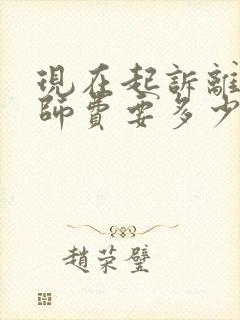 現在起訴離
師費要多少
趙荣璧